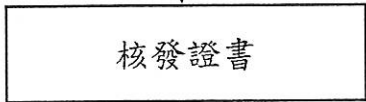 核發證書